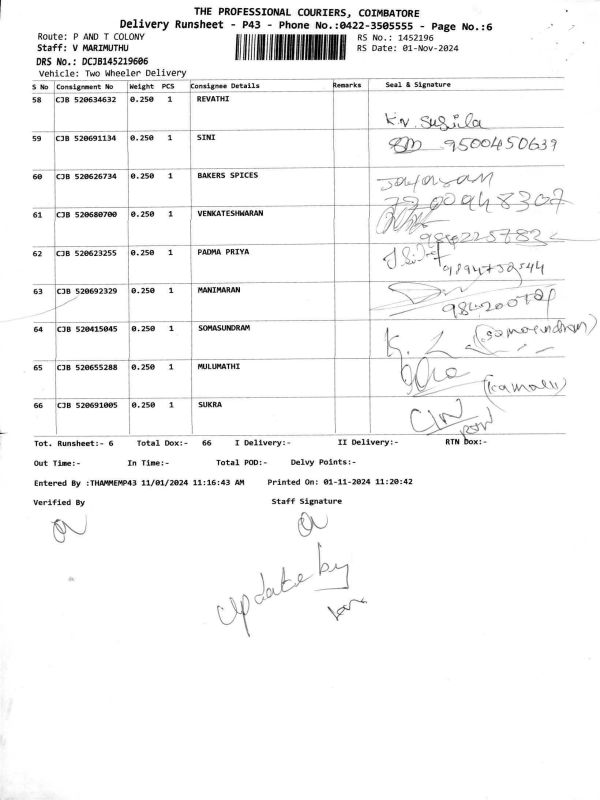 THE PROFESSIONAL COURIERS, COIMBATORE
Delivery Runsheet - P43 - Phone No.:0422-3505555 - Page No.:6
Route: P AND T COLONY RS No.: 1452196
Staff: V MARIMUTHU RS Date: 01-Nov-2024
DRS No.: DCJB145219606
Vehicle: Two Wheeler Delivery
S No Consignment No Weight PCS Consignee Details Remarks Seal & Signature
58 CJB 520634632 0.250 1 REVATHI
K.V. Susila
59 CJB 520691134 0.250 1 SINI 9500450639
60 CJB 520626734 0.250 1 BAKERS SPICES
61 CJB 520680700 0.250 1 VENKATESHWARAN
62 CJB 520623255 0.250 1 PADMA PRIYA
63 CJB 520692329 0.250 1 MANIMARAN
64 CJB 520415045 0.250 1 SOMASUNDRAM (Somasundram)
65 CJB 520655288 0.250 1 MULUMATHI
(Kamala)
66 CJB 520691005 0.250 1 SUKRA
Tot. Runsheet:- 6 Total Dox:- 66 I Delivery:- II Delivery:- RTN Dox:-
Out Time:- In Time:- Total POD:- Delvy Points:-
Entered By :THAMMEMP43 11/01/2024 11:16:43 AM Printed On: 01-11-2024 11:20:42
Verified By Staff Signature
Update by